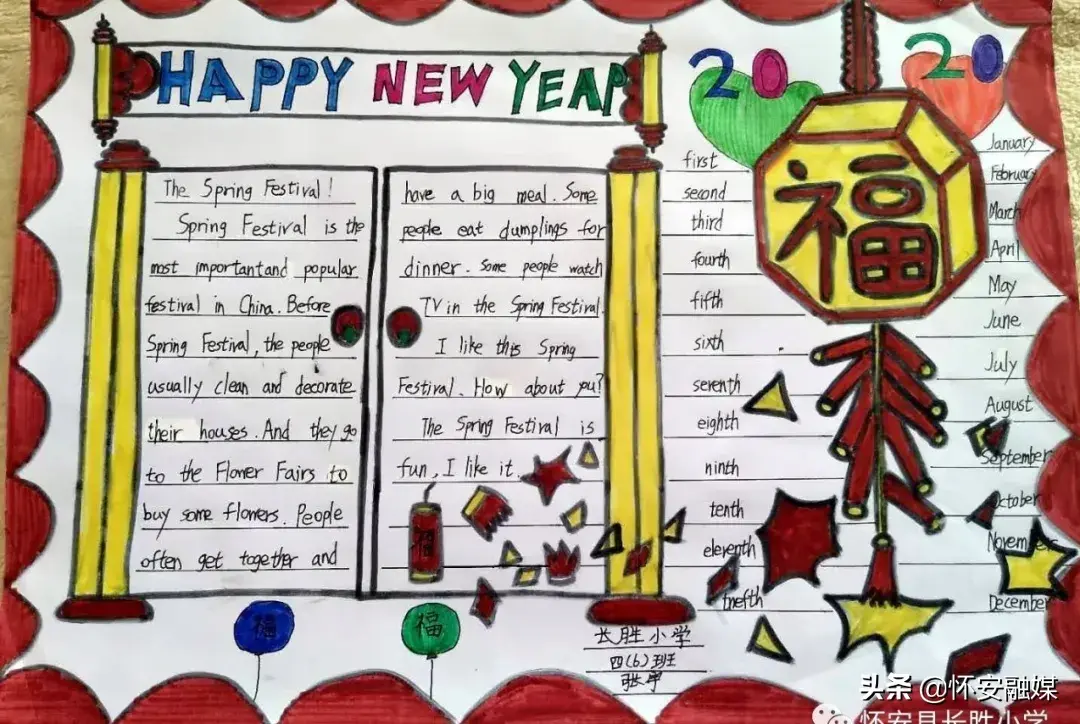 HAPPY NEW YEAR
2020
The Spring Festival!
Spring Festival is the
most importantand popular
festival in China. Before
Spring Festival, the people
usually clean and decorate
their houses. And they go
to the Flower Fairs to
buy some flowers. People
often get together and
have a big meal. Some
people eat dumplings for
dinner. Some people watch
TV in the Spring Festival.
I like this Spring
Festival. How about you?
The Spring Festival is
fun, I like it.
福
福
福
first
second
third
fourth
fifth
sixth
seventh
eighth
ninth
tenth
eleventh
twefth
福
January
February
March
April
May
June
July
August
September
October
November
December
长胜小学
四(6)班
头条 @怀安融媒
怀安县长胜小学